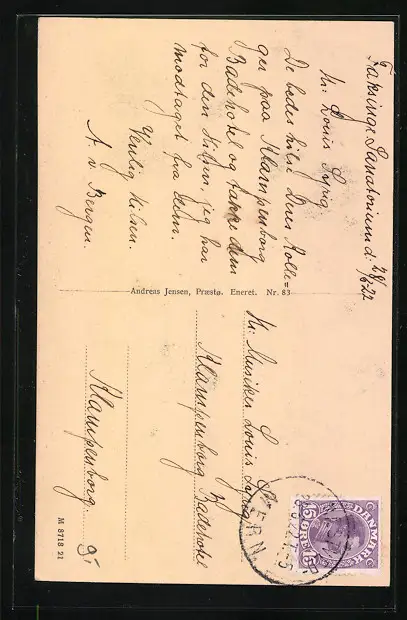 Faksinge Sanatorium d. 28/6 22
Hr. Louis
De bedes hilse Deres Kolle=
ger paa Klampenborg
Badehotel og takke dem
for den Hilsen, jeg har
modtaget fra dem.
Venlig Hilsen.
A. v. Bergen.
Andreas Jensen, Præstø. Eneret. Nr. 83
Hr. Musiker Louis
Klampenborg Badehotel
Klampenborg
M 8718 21
DANMARK
15 ØRE 15